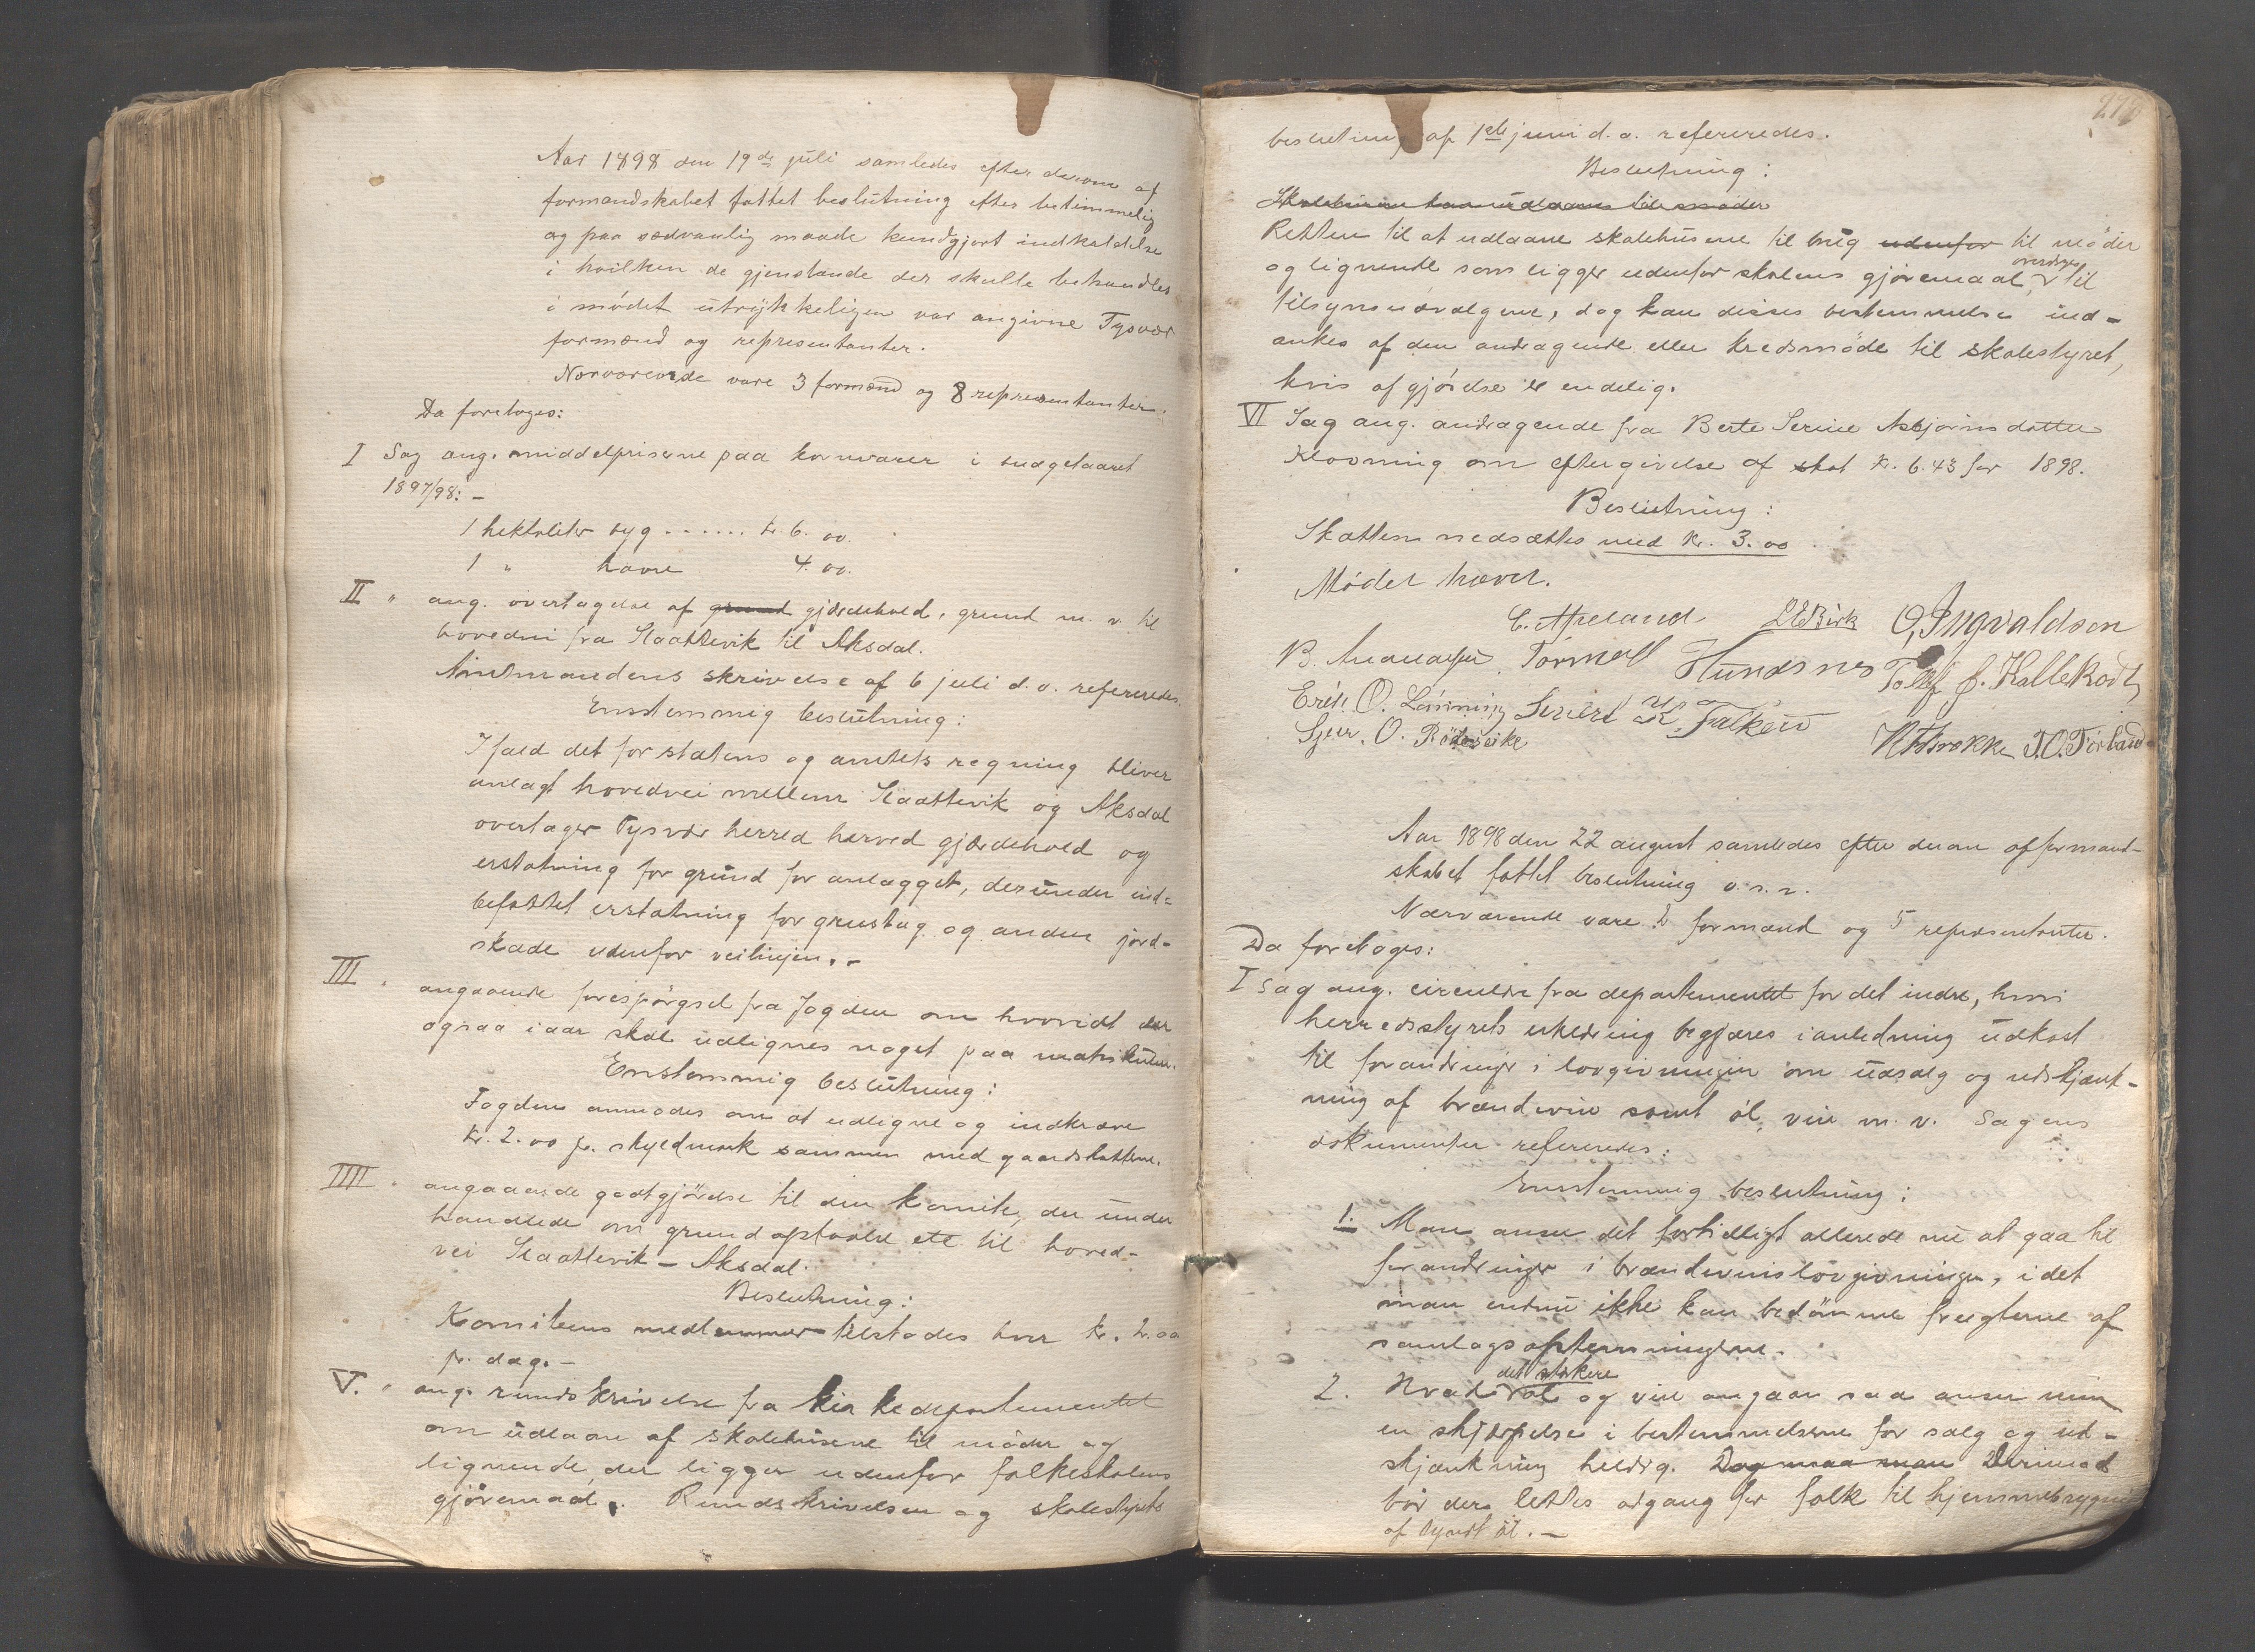 Aar 1898 den 19de juli samledes efter derom af
formandskabet fattet beslutning efter betimmelig
og paa sædvanlig maade kundgjort indkaldelse
i hvilken de gjenstande der skulle behandles
i mödet utrykkeligen var angivne Tysvær
formænd og representanter.
Nærværende vare 3 formænd og 8 representanter.
Da foretoges:
I Sag ang. middelpriserne paa kornvarer i budgetaaret
1897/98: –
1 hektoliter byg ...... kr. 6. 00.
1 " havre 4. 00.
II " ang. overtagelse af grund gjærdehold, grund m. v. til
hovedvei fra Slaattevik til Aksdal.
Amtmandens skrivelse af 6 juli d. a. refereredes.
Enstemmig beslutning:
I fald det for statens og amtets regning bliver
anlagt hovedvei mellem Slaattevik og Aksdal
overtager Tysvær herred herved gjærdehold og
erstatning for grund for anlægget, derunder ind-
befattet erstatning for grustag og anden jord-
skade udenfor veilinjen. –
III " angaaende forespörgsel fra Fogden om hvorvidt der
ogsaa iaar skal udlignes noget paa matrikulen.
Enstemmig beslutning:
Fogden anmodes om at udligne og indkræve
kr. 2.00 pr. skyldmark sammen med gaardskatterne.
IIII " angaaende godtgjörelse til den komite, der under
handlede om grundafstaaelse etc til hoved-
vei Slaattevik – Aksdal.
Beslutning:
Komiteens medlemmer tilstodes hver kr. 2.00
pr. dag. –
V. " ang. rundskrivelse fra kirkedepartementet
om udlaan af skolehusene til möder og
lignende, der ligger udenfor folkeskolens
gjöremaal. Rundskrivelsen og skolestyrets
beslutning af 1ste juni d. a. refereredes.
Beslutning:
Skolehusene kan udlaanes til möder
Retten til at udlaane skolehusene til brug udenfor til möder
og lignende som ligger udenfor skolens gjöremaal, overdrages til
tilsynsudvalgene, dog kan disses bestemmelse ind-
ankes af den andragende eller kredsmöde til skolestyret,
hvis afgjörelse er endelig.
VI Sag ang. andragende fra Berte Serine Asbjörnsdatter
Klovning om eftergivelse af skat kr. 6.43 for 1898.
Beslutning:
Skatten nedsættes med kr. 3.00
Mödet hævet.
C. Apeland O. Ingvaldsen
B. Tormod Hundsnes
Erik O. Lönning Sivert K. Falkeid
Sjur. O. Rödsvike
Aar 1898 den 22 august samledes efter derom af formand-
skabet fattet beslutning o. s. v.
Nærværende vare 2 formænd og 5 representanter.
Da foretoges:
I Sag ang. circulære fra departementet for det indre, hvori
herredsstyrets erklæring begjæres i anledning udkast
til forandringer i lovgivningen om udsalg og udskjænk-
ning af brændevin samt öl, vin m. v. Sagens
dokumenter refereredes:
Enstemmig beslutning:
1. Man anser det fortidligt allerede nu at gaa til
forandringer i brændevinslovgivningen, idet
man endnu ikke kan bedömme frugterne af
samlagsafstemningerne.
2. Hvad det stærkere öl og vin angaar saa anser man
en skjærpelse i bestemmelserne for salg og ud-
skjænkning heldig. Dog maa man Derimod
bör der lettes adgang for folk til hjemmebrygning
af tyndt öl. –